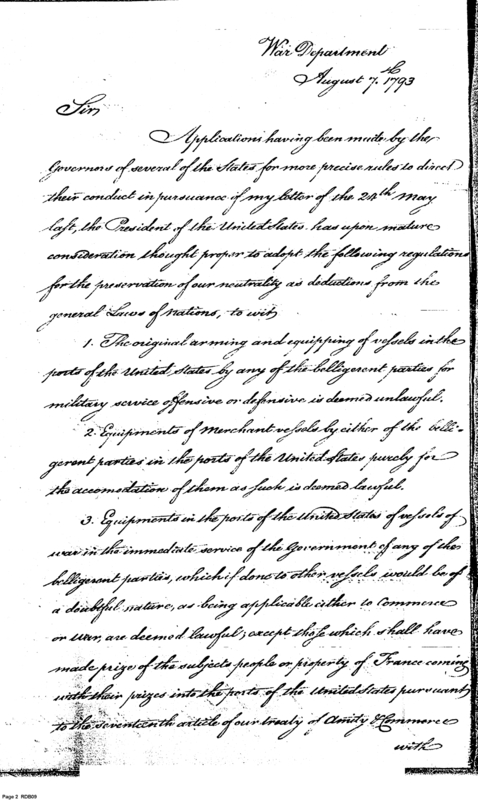 War Department
August 7.th 1793
Sir,
Applications having been made by the
Governors of several of the States for more precise rules to direct
their conduct in pursuance of my letter of the 24th May
last, the President of the United States has upon mature
consideration thought proper to adopt the following regulations
for the preservation of our neutrality as deductions from the
general Laws of nations, to wit,
1. The original arming and equipping of vessels in the
ports of the United States by any of the belligerent parties for
military service offensive or defensive is deemed unlawful.
2. Equipments of Merchant vessels by either of the belli-
gerent parties in the ports of the United States purely for
the accomodation of them as such is deemed lawful.
3. Equipments in the ports of the United States of vessels of
war in the immediate service of the Government of any of the
belligerent parties, which if done to other vessels would be of
a doubtful nature, as being applicable either to Commerce
or war, are deemed lawful; except those which shall have
made prize of the subjects people or property of France coming
with their prizes into the ports of the United States pursuant
to the seventeenth article of our treaty of Amity & Commerce
with
Page 2 RDB09